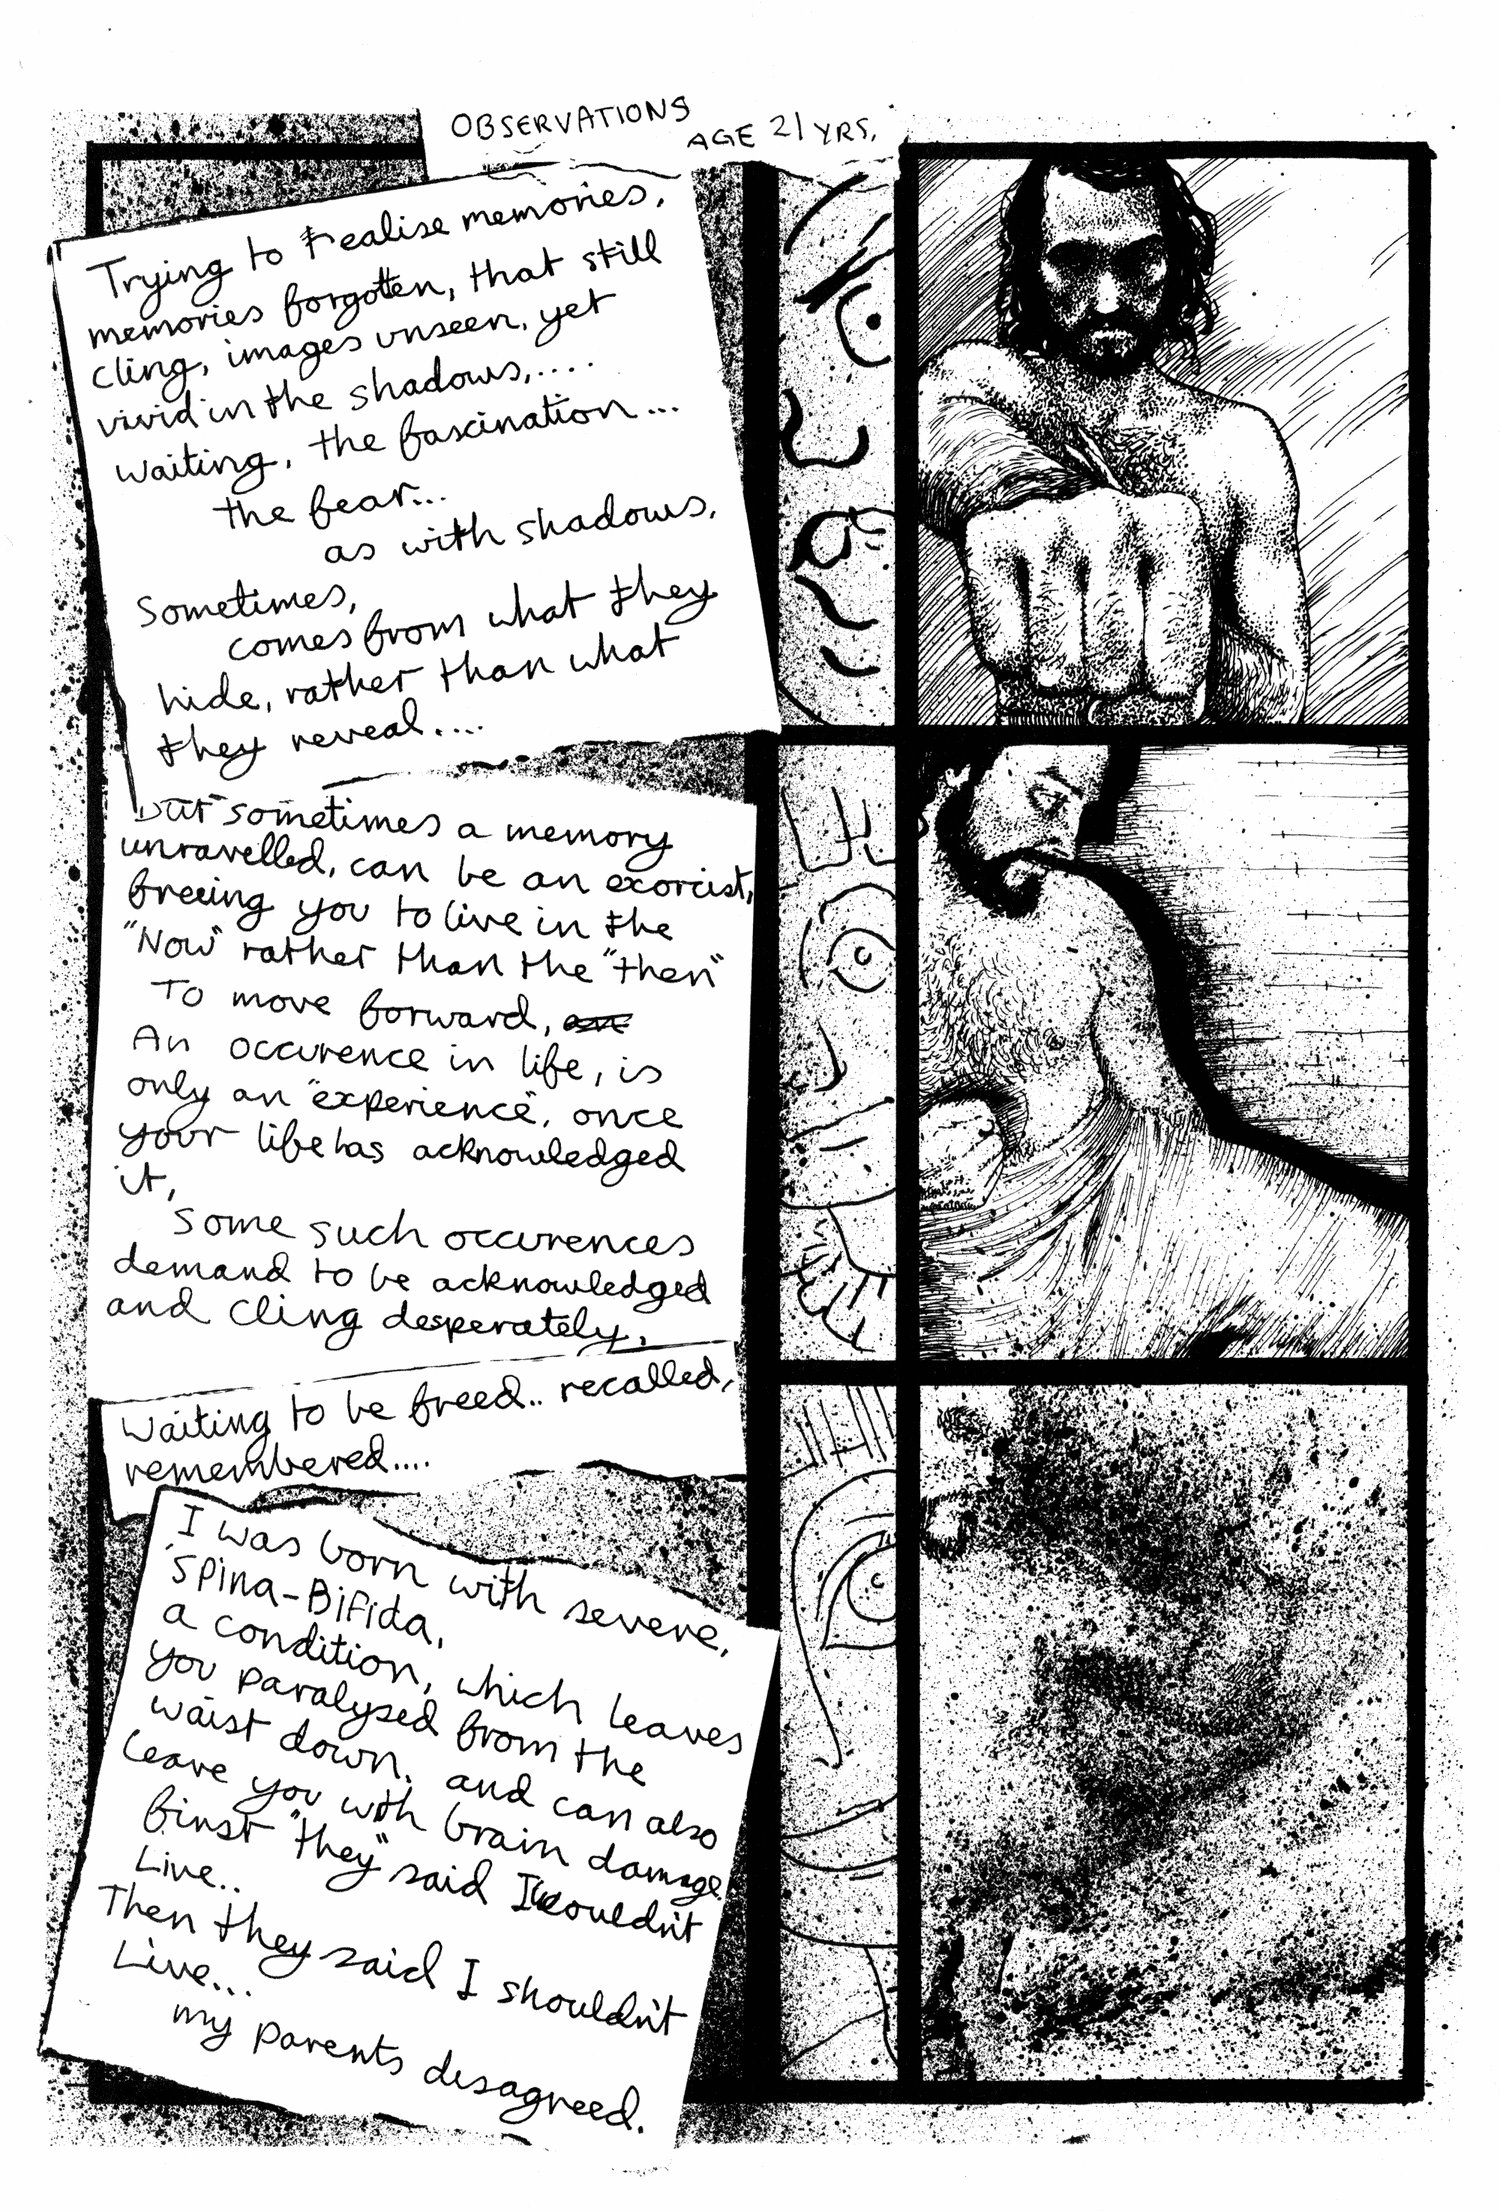 OBSERVATIONS
AGE 21 YRS.
Trying to realise memories,
memories forgotten, that still
cling, images unseen, yet
vivid in the shadows,....
waiting, the fascination...
the fear...
as with shadows,
Sometimes,
comes from what they
hide, rather than what
they reveal....
but sometimes a memory
unravelled, can be an exorcist,
freeing you to live in the
"Now" rather than the "then"
To move forward,
An occurence in life, is
only an "experience", once
your life has acknowledged
it,
Some such occurences
demand to be acknowledged
and cling desperately,
Waiting to be freed.. recalled,
remembered....
I was born with severe,
Spina-Bifida,
a condition, which leaves
you paralysed from the
waist down, and can also
leave you with brain damage
first "they" said I wouldn't
Live..
Then they said I shouldn't
Live...
my parents disagreed.